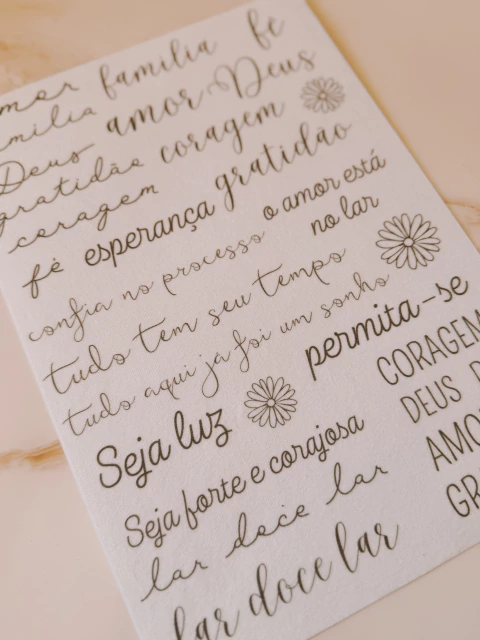 amor família fé
família amor Deus
Deus coragem
gratidão gratidão
coragem
fé esperança o amor está
no lar
confia no processo
tudo tem seu tempo
tudo aqui já foi um sonho
permita-se
Seja luz CORAGEM
DEUS
Seja forte e corajosa
lar doce lar
lar doce lar